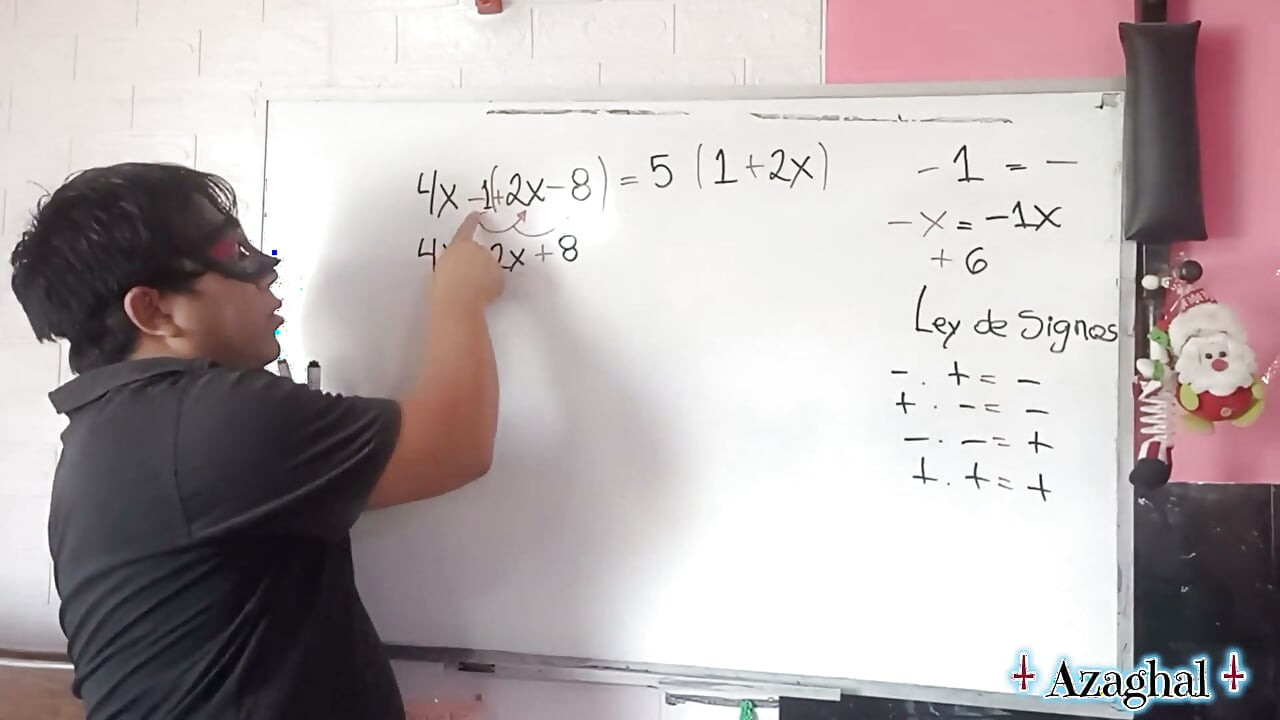 4x -1(+2x-8) = 5 (1+2x)
4x 2x + 8
- 1 = -
-x = -1x
+ 6
Ley de Signos
- . + = -
+ . - = -
- . - = +
+ . + = +
Azaghal